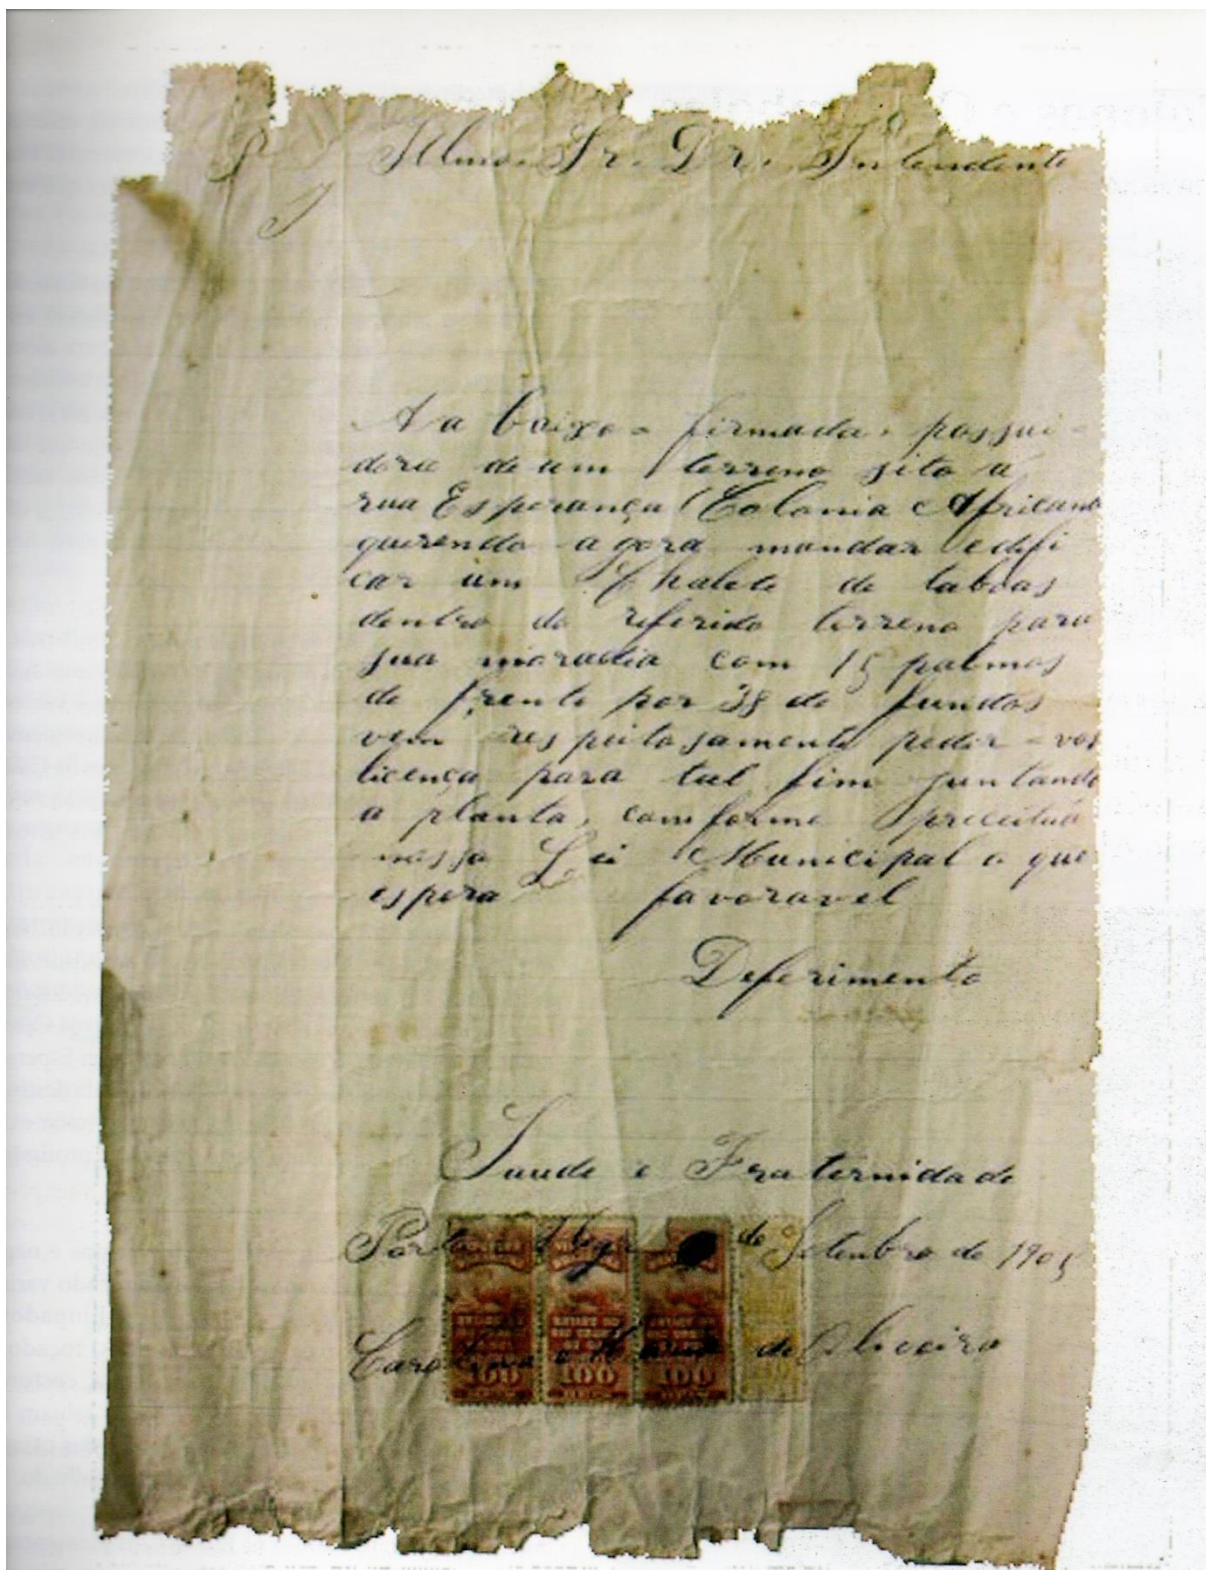 Illmo. Sr. Dr. Intendente
A a baixo = firmada, possui-
dora de um terreno sito á
rua Esperança (Colonia Africana
querendo agora mandar edifi
car um Chalete de taboas
dentro do referido terreno para
sua moradia com 15 palmos
de frente por 38 de fundos
vem respeitosamente pedir-vos
licença para tal fim juntando
a planta, conforme preceitua
nossa Lei Municipal o que
espera favoravel
Deferimento
Saude e Fraternidade
Porto Alegre de Setembro de 1905
Carolina de Oliveira
100 100 100